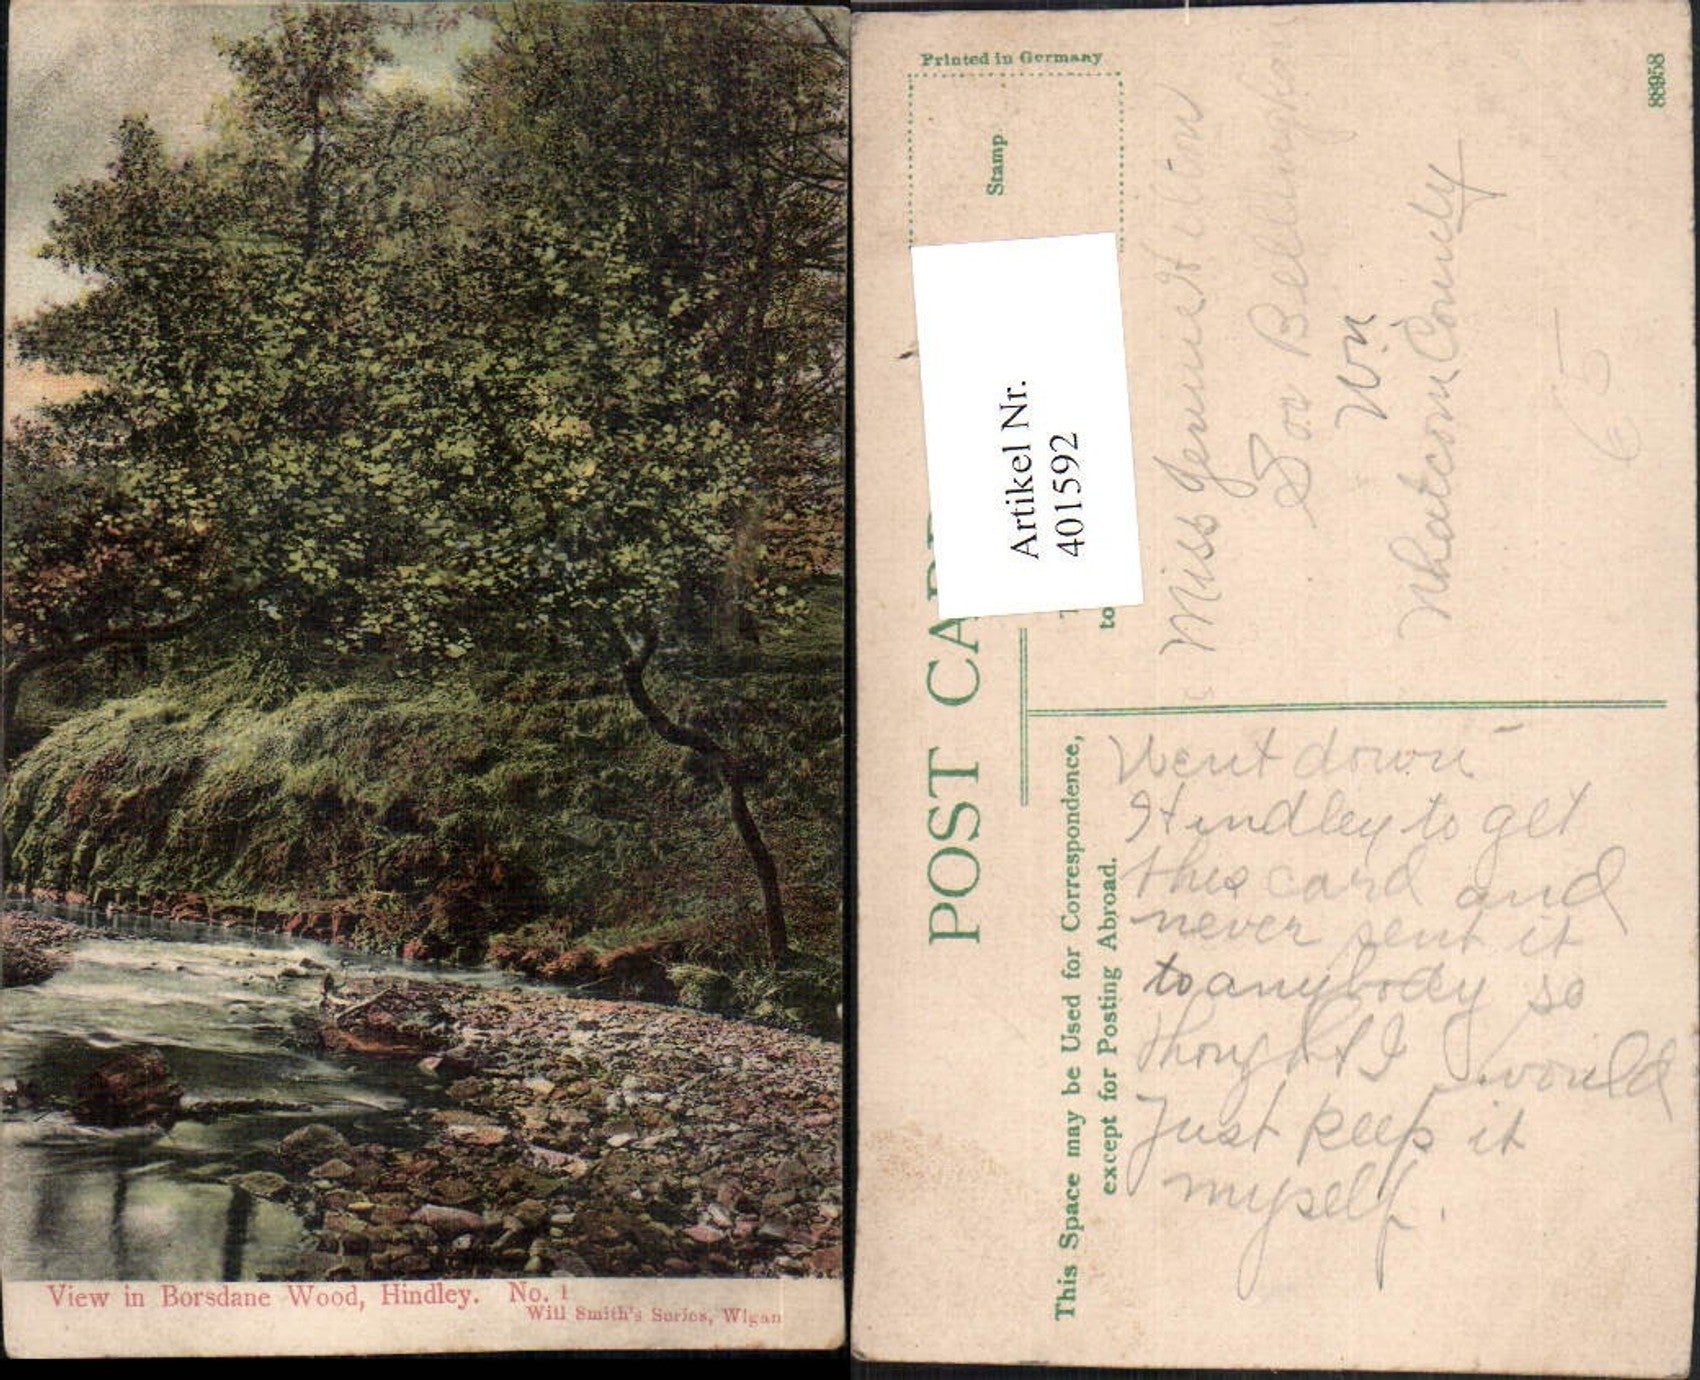 View in Borsdane Wood, Hindley. No. 1
Will Smith's Series, Wigan
Printed in Germany
Stamp
88958
Artikel Nr.
401592
POST CARD
to
This Space may be Used for Correspondence,
except for Posting Abroad.
Miss Jennie Hilton
So. Bellingham
Wn
Whatcom County
65
Went down
Hindley to get
this card and
never sent it
to anybody so
thought I would
Just keep it
myself.